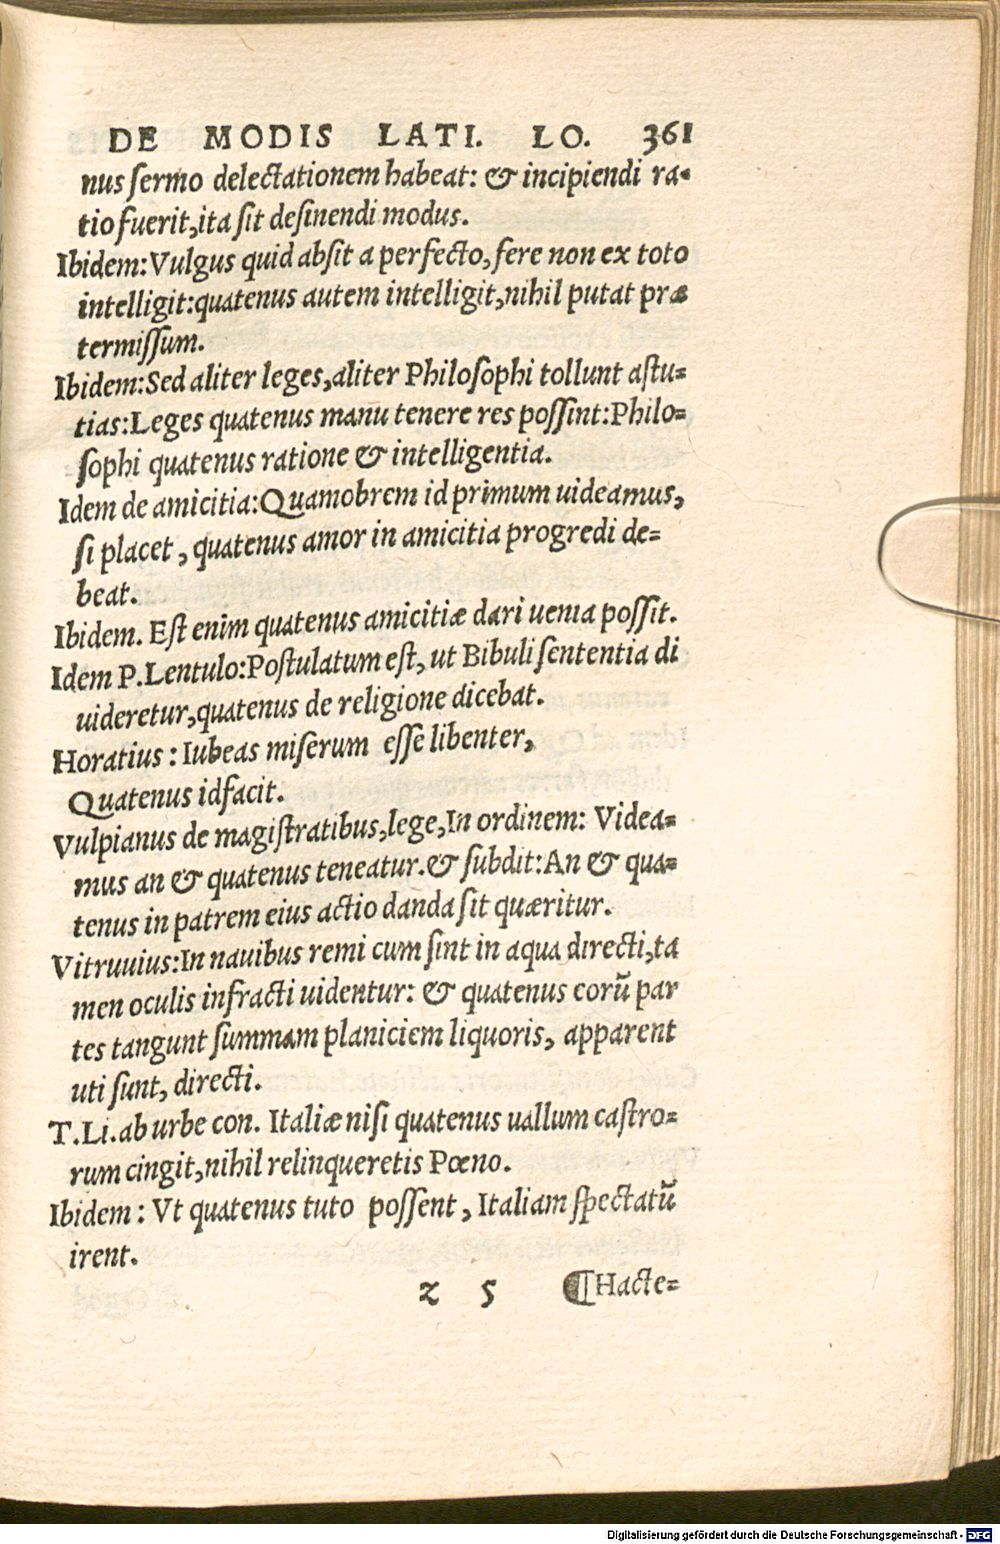 DE MODIS LATI. LO. 361
nus sermo delectationem habeat: & incipiendi ra-
tio fuerit, ita sit desinendi modus.
Ibidem: Vulgus quid absit a perfecto, fere non ex toto
intelligit: quatenus autem intelligit, nihil putat præ
termissum.
Ibidem: Sed aliter leges, aliter Philosophi tollunt astu-
tias: Leges quatenus manu tenere res possint: Philo-
sophi quatenus ratione & intelligentia.
Idem de amicitia: Quamobrem id primum uideamus,
si placet, quatenus amor in amicitia progredi de-
beat.
Ibidem. Est enim quatenus amicitiæ dari uenia possit.
Idem P. Lentulo: Postulatum est, ut Bibuli sententia di
uideretur, quatenus de religione dicebat.
Horatius: Iubeas miserum esse libenter,
Quatenus id facit.
Vulpianus de magistratibus, lege, In ordinem: Videa-
mus an & quatenus teneatur. & subdit: An & qua-
tenus in patrem eius actio danda sit quæritur.
Vitruuius: In nauibus remi cum sint in aqua directi, ta
men oculis infracti uidentur: & quatenus eorũ par
tes tangunt summam planiciem liquoris, apparent
uti sunt, directi.
T. Li. ab urbe con. Italiæ nisi quatenus uallum castro-
rum cingit, nihil relinqueretis Pœno.
Ibidem: Vt quatenus tuto possent, Italiam spectatũ
irent.
z 5 ¶Hacte-
Digitalisierung gefördert durch die Deutsche Forschungsgemeinschaft - DFG